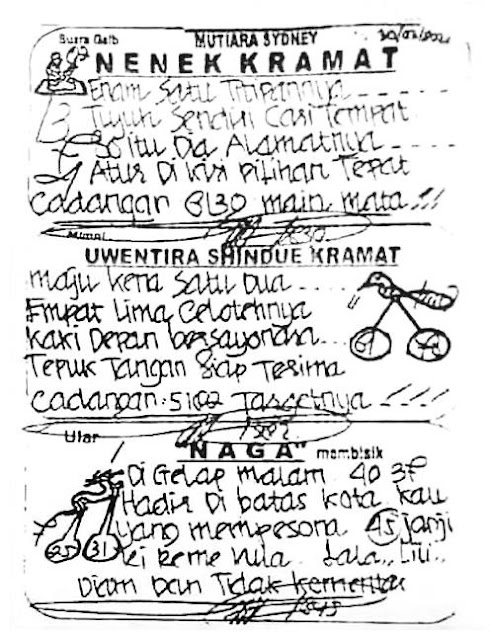 Suara Gaib MUTIARA SYDNEY
NENEK KRAMAT
Enam Satu Titipannya - - - -
Tujuh Sendiri Cari Tempat
30 itu Dia Alamatnya - - - -
Atur Di kiri Pilihan Tepat
Cadangan 6130 main mata !!
Mimpi
UWENTIRA SHINDUE KRAMAT
maju kena Satu Dua - - - -
Empat Lima Celotehnya
Kaki Depan bersayonara...
Tepuk Tangan Siap Terima
Cadangan: 5102 Targetnya - - - -
61
Ular
"NAGA" membisik
Di Gelap malam 40 37
Hadir Di batas kota kau
yang mempesona 45 janji
25 31
Lala.. Lili..
Diam Dan Tidak Komentar